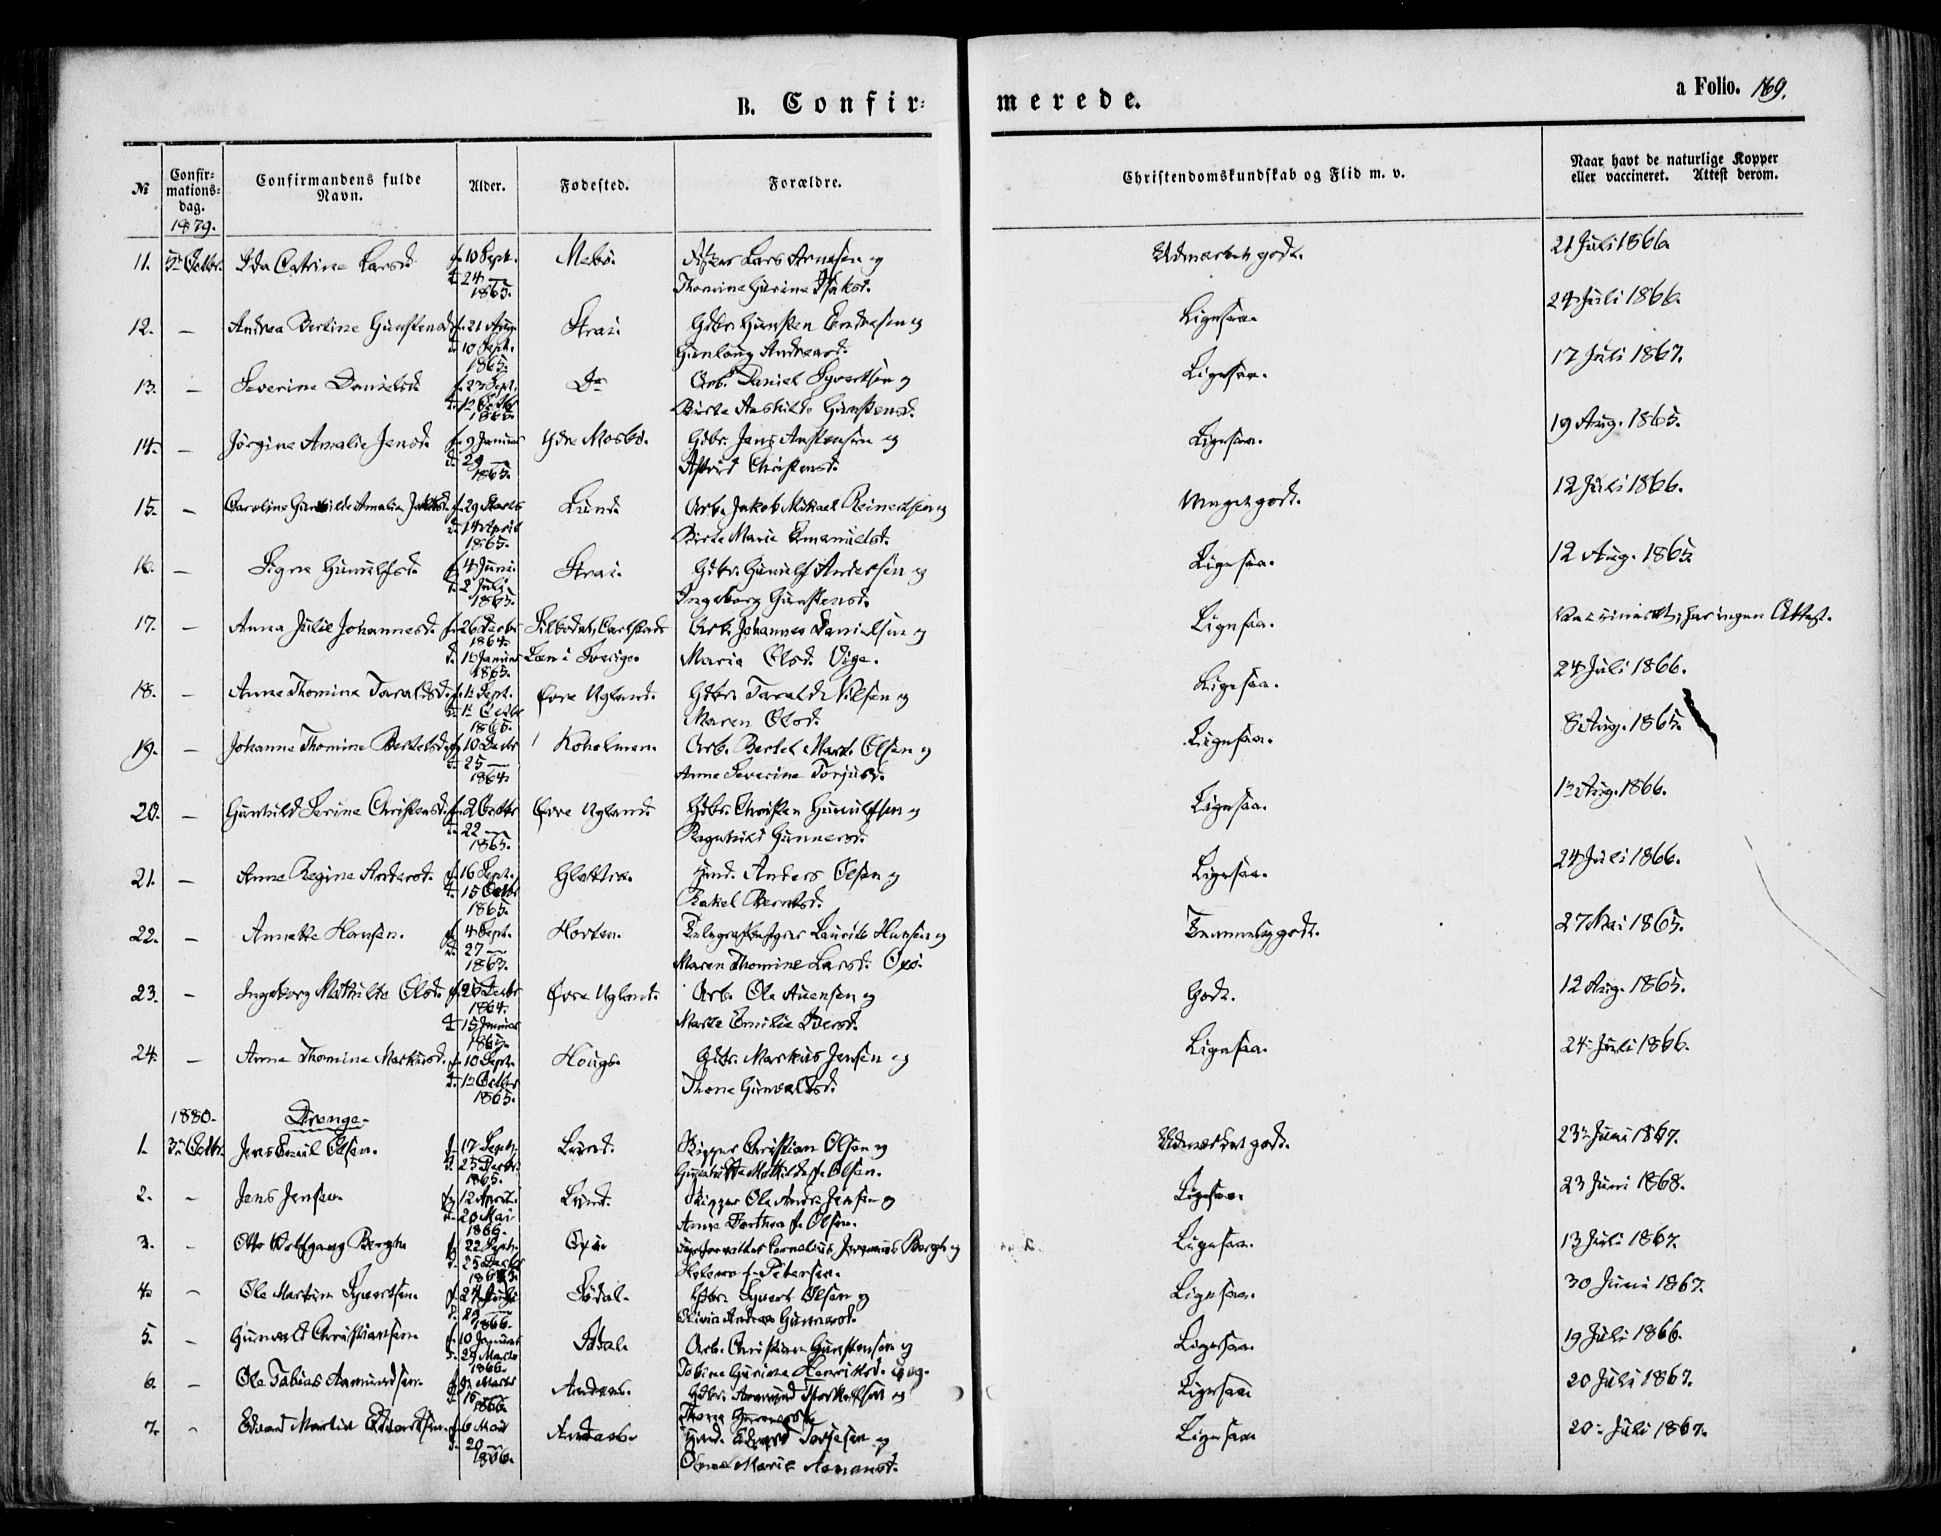 B. Confirmerede.
a Folio. 169.
№ Confirmationsdag. Confirmandens fulde Navn. Alder. Fødested. Forældre. Christendomskundskab og Flid m. v. Naar havt de naturlige Kopper eller vaccineret. Attest derom.
1879.
11. 5te Octbr. Ida Catrine Larsd. f. 10 Sept. Mebø. Lars Arnesen og Udmærket godt. 21 Juli 1866
d. 24 — 1865. Thomine Gurine Isaksd.
12. — Andrea Bertine Gunstensd. f. 21 Aug. Strai. Gdbr. Gunsten Endresen og Ligesaa. 24 Juli 1866.
d. 10 Sept. 1865. Gunlaug Andreasd.
13. — Severine Danielsd. f. 23 Sept. Do Arb. Daniel Syvertsen og Ligesaa. 17 Juli 1867.
d. 12 Octbr 1865. Birte Aashilde Gunstensd.
14. — Jörgine Amalie Jensd. f. 9 Januar Ydre Mosbø. Gdbr. Jens Anstensen og Ligesaa. 19 Aug. 1865.
d. 29 — 1865. Astrid Christensd.
15. — Caroline Gunhilde Amalie Jakobsd. f. 29 Marts Lund. Arb. Jakob Mikael Reinertsen og Meget godt. 12 Juli 1866.
d. 14 April 1865. Birte Marie Emanuelsd.
16. — Signe Gunulfsd. f. 4 Juni Strai. Gdbr. Gunulf Andersen og Ligesaa. 12 Aug. 1865.
d. 2 Juli 1865. Ingeborg Gunstensd.
17. — Anna Julie Johannesd. f. 26 Decbr 1864. Silbodal, Carlstads Arb. Johannes Danielsen og Ligesaa. Vaccineret, har ingen Attest.
d. Januar 1865. Læn i Sverige. Maria Olsd. Vige.
18. — Anne Thomine Taraldsd. f. 1 Sept. Øvre Ugland. Gdbr. Tarald Nilsen og Ligesaa. 24 Juli 1866.
d. 1 Octbr 1865. Maren Olsd.
19. — Johanne Thomine Bertelsd. f. 10 Decbr Koholmen. Arb. Bertel Mart. Olsen og Ligesaa. 8 Aug. 1865.
d. 25 — 1864. Anne Severine Torjusd.
20. — Gunhild Serine Christensd. f. 2 Octbr Øvre Ugland. Gdbr. Christen Gunulfsen og Ligesaa. 1 Aug. 1866.
d. 22 — 1865. Ragnhild Gunnersd.
21. — Anne Regine Andersd. f. 16 Sept. Glattre. Hmd. Anders Olsen og Ligesaa. 24 Juli 1866.
d. 15 Octbr 1865. Rakel Berntsd.
22. — Annette Hansen. f. 4 Sept. Horten. Laurits Hansen og Temmelig godt. 27 Mai 1865.
d. 27 — 1863. Maren Thomine Larsd. Oxø.
23. — Ingeborg Mathilde Olsd. f. 25 Decbr 1864. Øvre Ugland. Arb. Ole Auensen og Godt. 12 Aug. 1865.
d. 15 Januar 1865. Marte Emilie Iversd.
24. — Anne Thomine Markusd. f. 10 Sept. Houge. Gdbr. Markus Jensen og Ligesaa. 24 Juli 1866.
d. 1 Octbr 1865. Thone Gunvaldsd.
1880. Drenge.
1. 3die Octbr. Jens Emil Olsen. f. 17 Septr. Lund. Skipper Christian Olsen og Udmærket godt. 23 Juni 1867.
d. 25 Decbr. 1865. Mathilde f. Olsen.
2. — Jens Jensen. f. 12 April. Lund. Skipper Ole Andr. Jensen og Ligesaa. 23 Juni 1868.
d. 20 Mai 1866. Anne Dorthea f. Olsen.
3. — Otto Wolfgang Bergh. f. 22 Septr. Oxø. Cornelius Bergh og Ligesaa. 13 Juli 1867.
d. 25 Decbr 1865. Helene f. Petersen.
4. — Ole Martin Syvertsen. Sødal. Gdbr. Syvert Olsen og Ligesaa. 30 Juni 1867.
d. 29 — 1866. Olivia Andrea Gunnersd.
5. — Gunvald Christiansen. f. 10 Januar Sødal. Arb. Christian Gunstensen og Ligesaa. 19 Juli 1866.
d. 29 Marts 1866. Tobine Gurine Henriksd.
6. — Ole Tobias Aamundsen. Marts Andaas. Gdbr. Aamund Torkelsen og Ligesaa. 20 Juli 1867.
1866. Thone
7. — Edvard Martin Edvardsen. f. 6 Mai Andaas. Hmd. Edvard Torjesen og Ligesaa 20 Juli 1867.
d. 20 — 1866. Marie